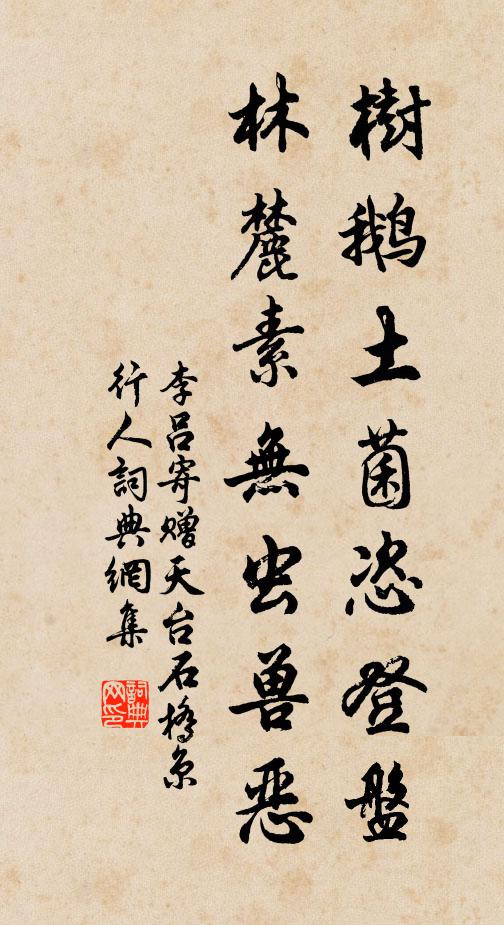 樹鹅土菌恣登盤
林麓素無虫兽惡
李吕寄赠天台石橋京
行人詞典網集
詞典网印